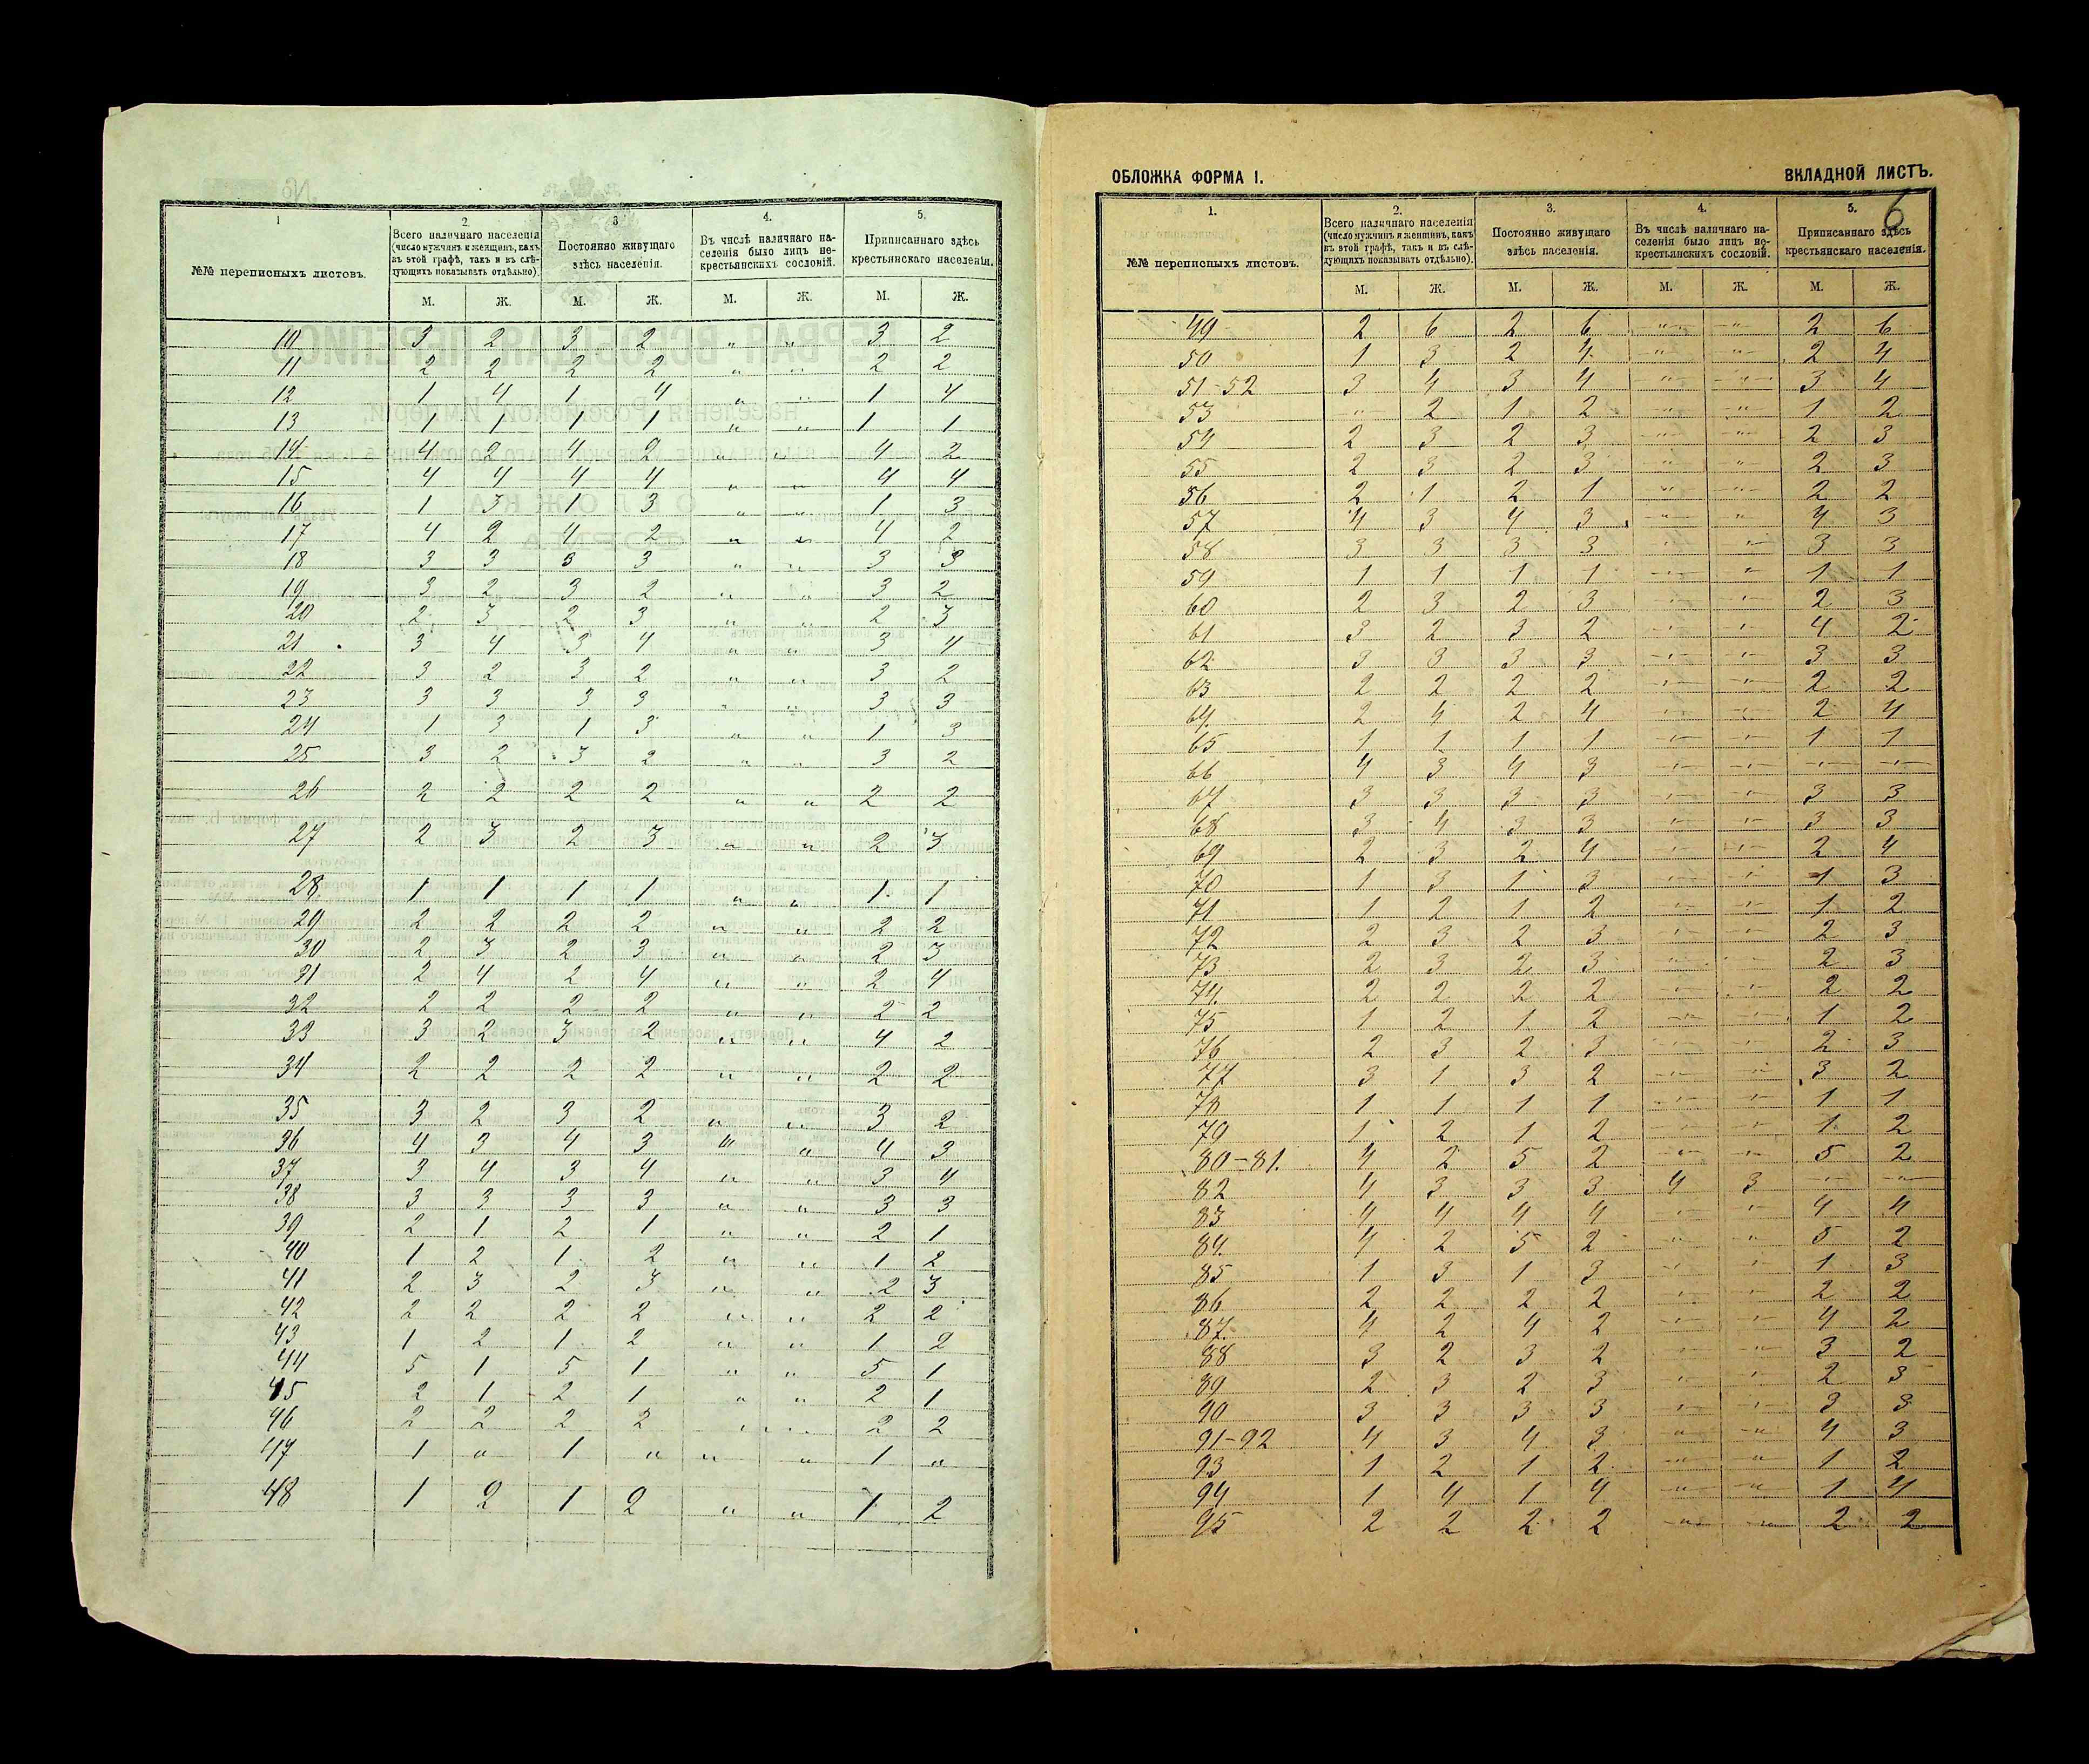 1
2.
3
4.
5.
№№ переписныхъ листовъ.
Всего наличнаго населенія
(число мужчинъ и женщинъ, какъ
въ этой графѣ, такъ и въ слѣ-
дующихъ показывать отдѣльно).
Постоянно живущаго
здѣсь населенія.
Въ числѣ наличнаго на-
селенія было лицъ не-
крестьянскихъ сословій.
Приписаннаго здѣсь
крестьянскаго населенія.
М. Ж. М. Ж. М. Ж. М. Ж.
10 3 2 3 2 " " 3 2
11 2 2 2 2 " " 2 2
12 1 4 1 4 " " 1 4
13 1 1 1 1 " " 1 1
14 4 2 4 2 " " 4 2
15 4 4 4 4 " " 4 4
16 1 3 1 3 " " 1 3
17 4 2 4 2 " " 4 2
18 3 3 3 3 " " 3 3
19 3 2 3 2 " " 3 2
20 2 3 2 3 " " 2 3
21 3 4 3 4 " " 3 4
22 3 2 3 2 " " 3 2
23 3 3 3 3 " " 3 3
24 1 3 1 3 " " 1 3
25 3 2 3 2 " " 3 2
26 2 2 2 2 " " 2 2
27 2 3 2 3 " " 2 3
28 1 1 1 1 " " 1 1
29 2 2 2 2 " " 2 2
30 2 3 2 3 " " 2 3
31 2 4 2 4 " " 2 4
32 2 2 2 2 " " 2 2
33 3 2 3 2 " " 4 2
34 2 2 2 2 " " 2 2
35 3 2 3 2 " " 3 2
36 4 3 4 3 " " 4 3
37 3 4 3 4 " " 3 4
38 3 3 3 3 " " 3 3
39 2 1 2 1 " " 2 1
40 1 2 1 2 " " 1 2
41 2 3 2 3 " " 2 3
42 2 2 2 2 " " 2 2
43 1 2 1 2 " " 1 2
44 5 1 5 1 " " 5 1
45 2 1 2 1 " " 2 1
46 2 2 2 2 " " 2 2
47 1 " 1 " " " 1 "
48 1 2 1 2 " " 1 2
ОБЛОЖКА ФОРМА I.
ВКЛАДНОЙ ЛИСТЪ.
6
1.
2.
3.
4.
5.
№№ переписныхъ листовъ.
Всего наличнаго населенія
(число мужчинъ и женщинъ, какъ
въ этой графѣ, такъ и въ слѣ-
дующихъ показывать отдѣльно).
Постоянно живущаго
здѣсь населенія.
Въ числѣ наличнаго на-
селенія было лицъ не-
крестьянскихъ сословій.
Приписаннаго здѣсь
крестьянскаго населенія.
М. Ж. М. Ж. М. Ж. М. Ж.
49 2 6 2 6 -"- -"- 2 6
50 1 3 2 4 -"- -"- 2 4
51-52 3 4 3 4 -"- -"- 3 4
53 -"- 2 1 2 -"- -"- 1 2
54 2 3 2 3 -"- -"- 2 3
55 2 3 2 3 -"- -"- 2 3
56 2 1 2 1 -"- -"- 2 2
57 4 3 4 3 -"- -"- 4 3
58 3 3 3 3 -"- -"- 3 3
59 1 1 1 1 -"- -"- 1 1
60 2 3 2 3 -"- -"- 2 3
61 3 2 3 2 -"- -"- 4 2
62 3 3 3 3 -"- -"- 3 3
63 2 2 2 2 -"- -"- 2 2
64. 2 4 2 4 -"- -"- 2 4
65 1 1 1 1 -"- -"- 1 1
66 4 3 4 3 -"- -"- -"- -"-
67 3 3 3 3 -"- -"- 3 3
68 3 4 3 3 -"- -"- 3 3
69 2 3 2 4 -"- -"- 2 4
70 1 3 1 3 -"- -"- 1 3
71 1 2 1 2 -"- -"- 1 2
72 2 3 2 3 -"- -"- 2 3
73 2 3 2 3 -"- -"- 2 3
74. 2 2 2 2 -"- -"- 2 2
75 1 2 1 2 -"- -"- 1 2
76 2 3 2 3 -"- -"- 2 3
77 3 1 3 2 -"- -"- 3 2
78 1 1 1 1 -"- -"- 1 1
79 1 2 1 2 -"- -"- 1 2
80-81. 4 2 5 2 -"- -"- 5 2
82 4 3 3 3 4 3 -"- -"-
83 4 4 4 4 -"- -"- 4 4
84. 4 2 5 2 -"- -"- 5 2
85 1 3 1 3 -"- -"- 1 3
86 2 2 2 2 -"- -"- 2 2
87. 4 2 4 2 -"- -"- 4 2
88 3 2 3 2 -"- -"- 3 2
89 2 3 2 3 -"- -"- 2 3
90 3 3 3 3 -"- -"- 3 3
91-92 4 3 4 3 -"- -"- 4 3
93 1 2 1 2 -"- -"- 1 2
94 1 4 1 4 -"- -"- 1 4
95 2 2 2 2 -"- -"- 2 2